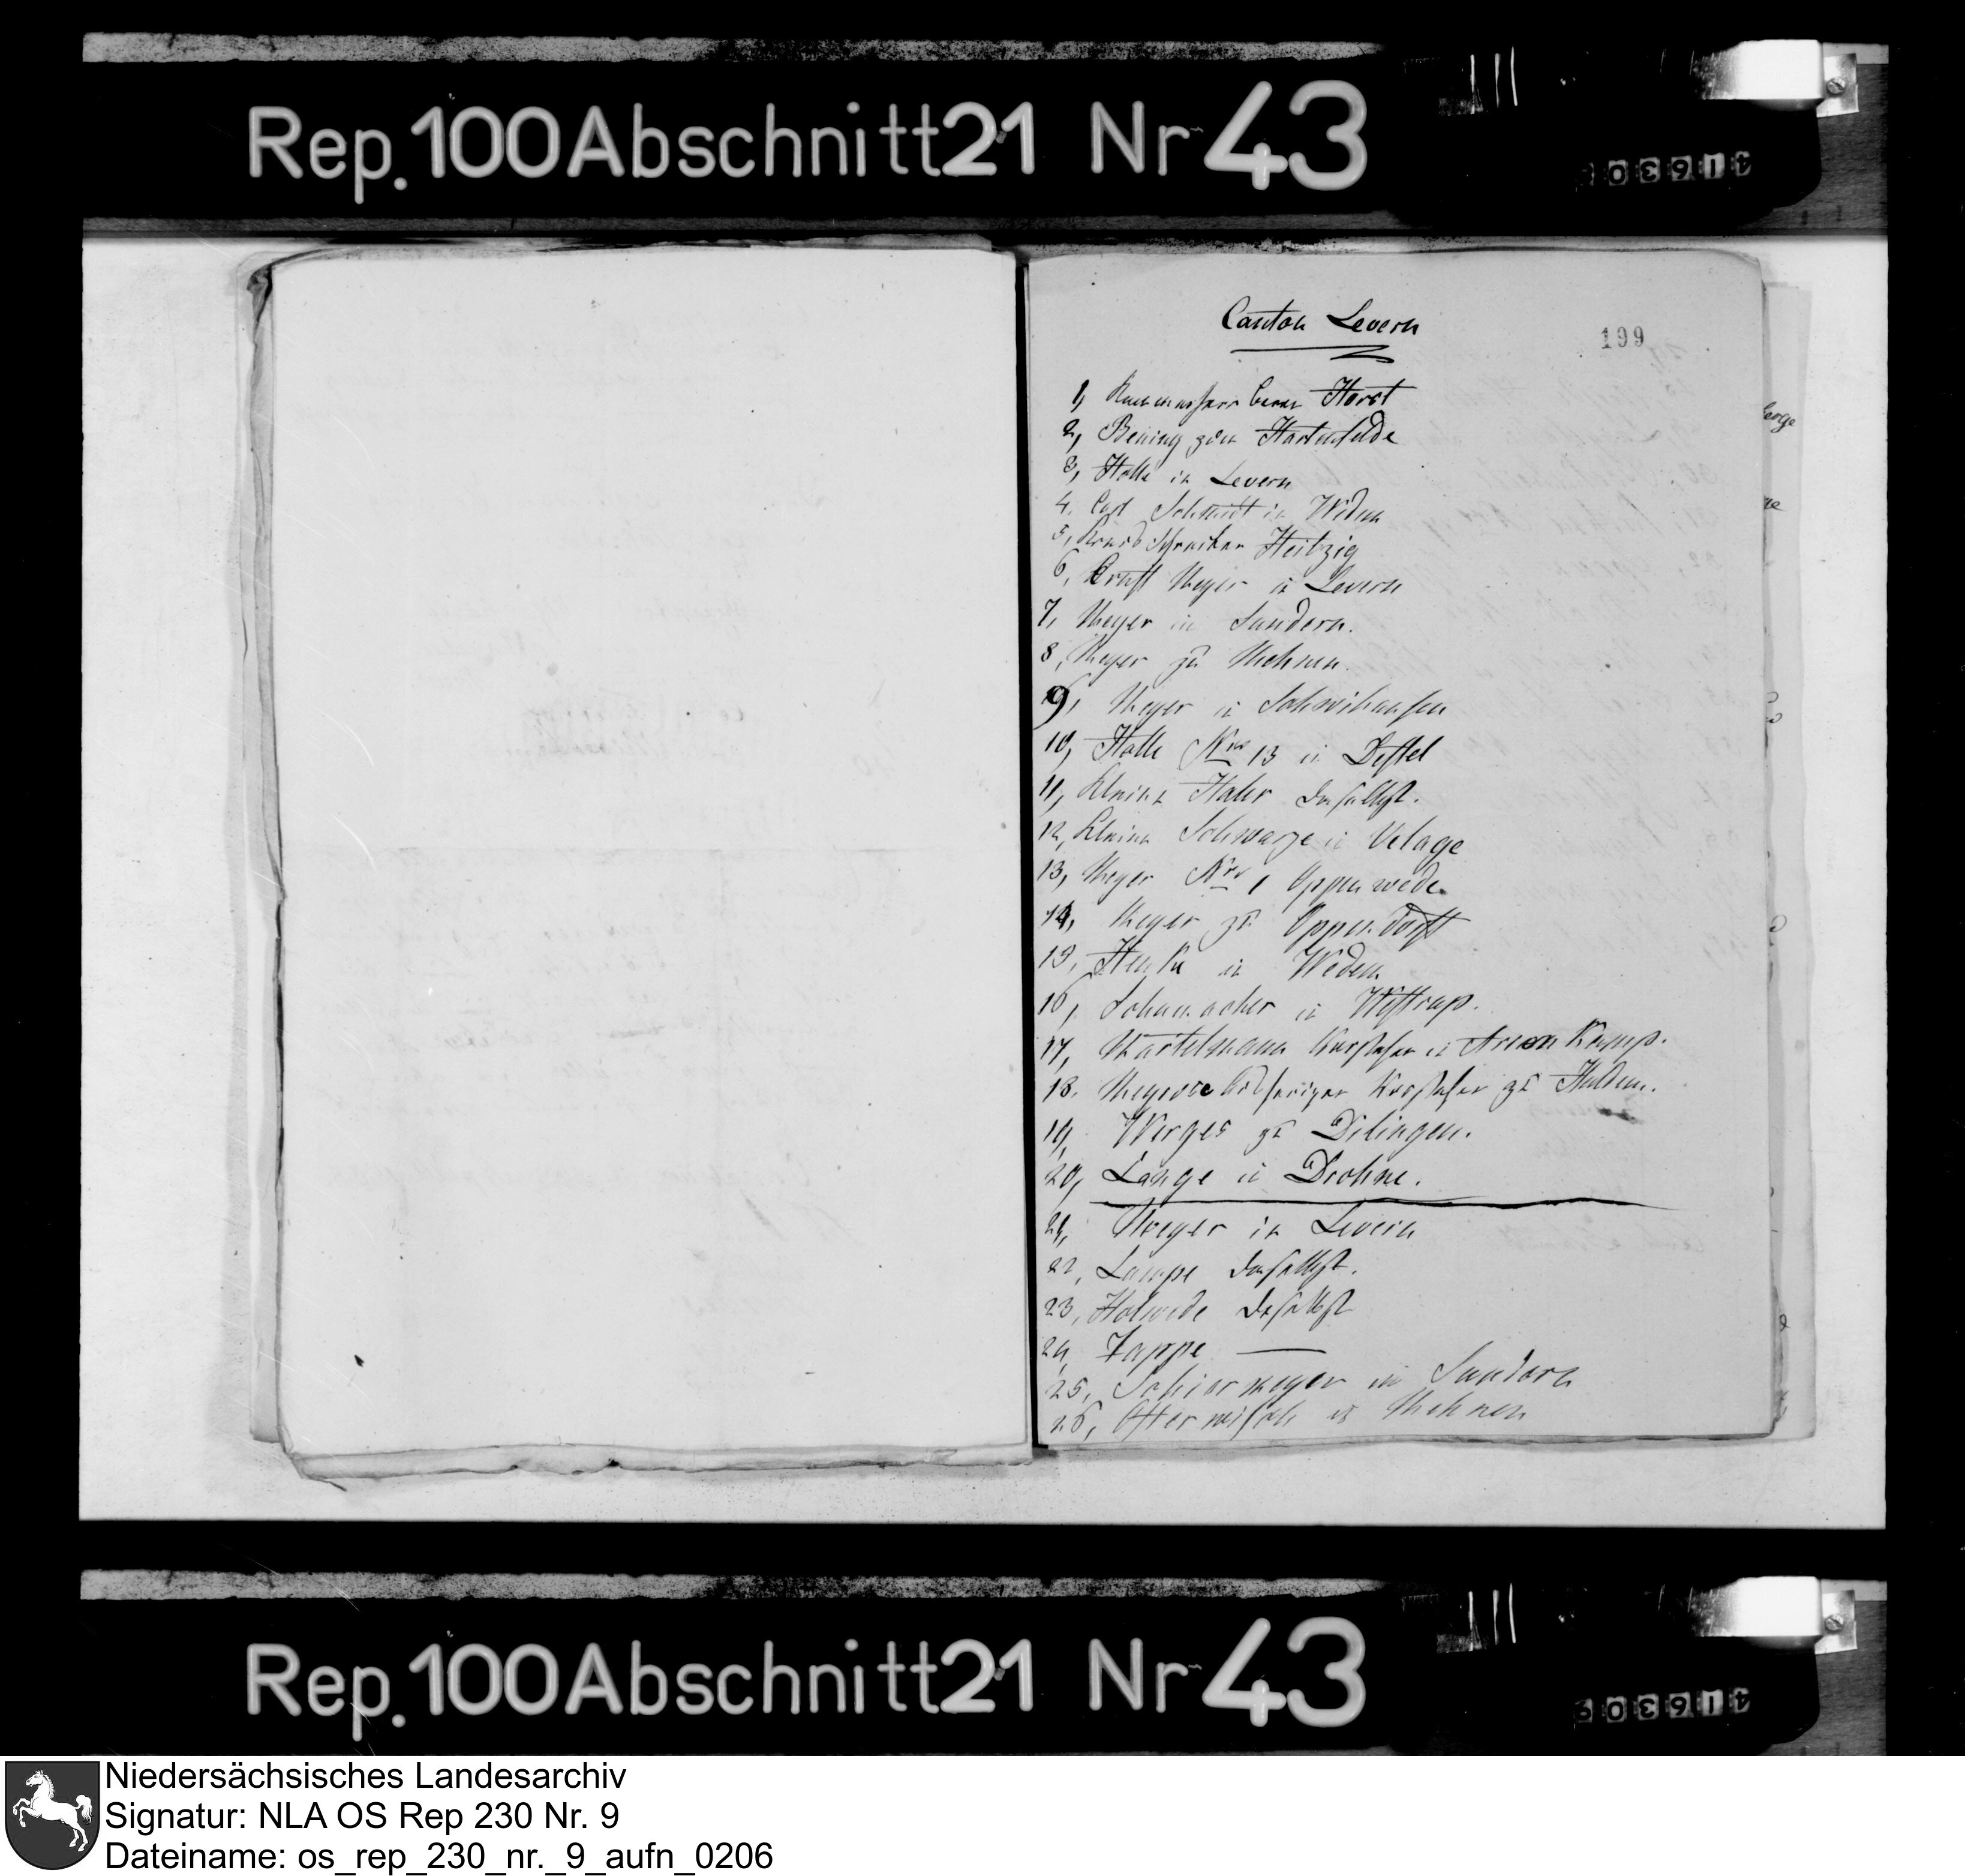 Rep. 100 Abschnitt 21 Nr 43
Canton Levern
199
1, Kammerherr baron Horst
2, Bening zum Hartenfelde
3, Holle in Levern
4. Carl Schmidt in Wedem
5, Schreiber Heitzig
6, Ernst Meyer in Levern
7, Meyer in Sundern.
8, Meyer zu Mehnen.
9, Meyer in Schröttinghausen
10, Holle Nro 13 in Destel
11, Kleine Haler daselbst.
12, Kleine Schwarze in Velage
13, Meyer Nro 1 Oppenwede.
14, Meyer zu Oppendorff
15, in Wedem
16, Schumacher in Westrup.
17, Martelmann Vorsteher in Arren Kamp.
18. bisheriger Vorsteher zu Haldem.
19, Werges zu Dilingen.
20, Lange in Drohne.
21, Meyer in Levern
22, Lampe daselbst.
23, Holwede daselbst
24, Tappe —
25, Schiermeyer in Sundern
26, in Mehnen
Rep. 100 Abschnitt 21 Nr 43
Niedersächsisches Landesarchiv
Signatur: NLA OS Rep 230 Nr. 9
Dateiname: os_rep_230_nr._9_aufn_0206